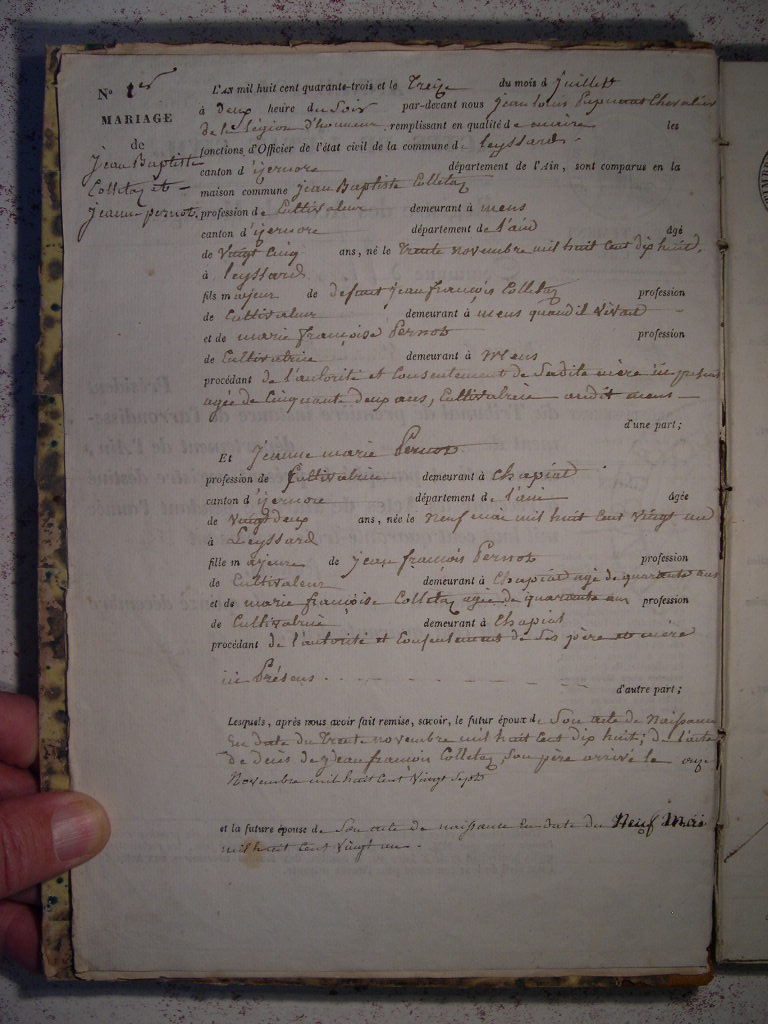 N° 1er
MARIAGE
de
Jean Baptiste
Colletaz et
Jeanne pernot.
L'AN mil huit cent quarante-trois et le Treize du mois d Juillet
à deux heure du Soir par-devant nous Jean Louis Chevalier
de la Légion d'honneur, remplissant en qualité de maire les
fonctions d'Officier de l'état civil de la commune de Leyssard
canton d'ijernore département de l'Ain, sont comparus en la
maison commune Jean Baptiste Colletaz
profession de Cultivateur demeurant à mens
canton d'ijernore département de l'ain âgé
de Vingt Cinq ans, né le Trente novembre mil huit Cent dix huit,
à Leyssard
fils majeur de defunt jean françois Colletaz profession
de Cultivateur demeurant à mens quand il vivait
et de marie françoise Pernot profession
de Cultivatrice demeurant à Mens
procédant de l'autorité et Consentement de Sadite mère
agée de Cinquante deux ans, Cultivatrice audit mens
d'une part;
Et Jeanne marie Pernot
profession de Cultivatrice demeurant à Chapiat
canton d'ijernore département de l'ain âgée
de Vingt deux ans, née le Neuf mai mil huit Cent Vingt un
à Leyssard
fille majeure de jean françois Pernot profession
de Cultivateur demeurant à Chapiat agé de quarante ans
et de marie françoise Colletaz agée de quarante ans profession
de Cultivatrice demeurant à Chapiat
procédant de l'autorité et Consentement de Ses père et mère
ici Présens
d'autre part;
Lesquels, après nous avoir fait remise, savoir, le futur époux de Son acte de Naissance
En date du Trente novembre mil huit Cent dix huit; d l'acte
de deces de jean françois Colletaz, Son père arrivé le onze
Novembre mil huit Cent Vingt Sept
et la future épouse de Son acte de naissance En date du Neuf Mai
mil huit Cent Vingt un